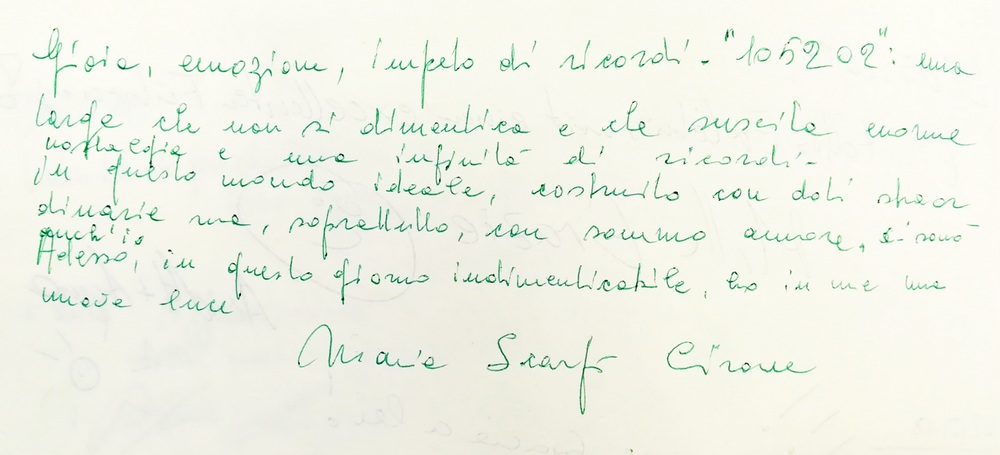 Gioia, emozione, impeto di ricordi - "105202": una
targa che non si dimentica e che suscita enorme
nostalgia e una infinità di ricordi -
In questo mondo ideale, costruito con doti straor
dinarie ma, soprattutto, con sommo amore, ci sono
anch'io
Adesso, in questo giorno indimenticabile, ho in me una
nuova luce
Maria Scarfì Cirone